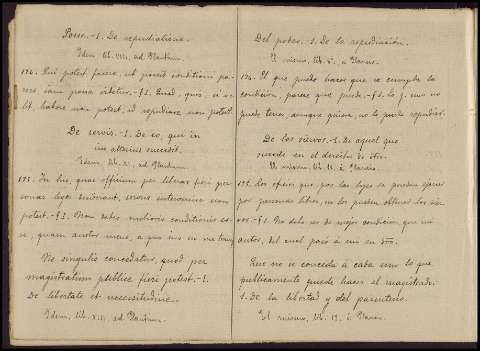 Posse.-1. De repudiatione.
Idem, lib. XII, ad Plautium.
174. Qui potest facere, ut possit conditioni pa-
rere, iam posse videtur.-§1. Quod quis, si ve-
lit, habere non potest, id repudiare non potest.
De servis.-1. De eo, qui in
ius alterius succedit.
Idem, lib. XI, ad Plautium.
175. In his, quae officium per liberas fieri per-
sonas leges desiderant, servus intervenire non
potest.-§1. Non debeo melioris conditionis es-
se, quam auctor meus, a quo ius in me transit
Ne singulis concedatur, quod per
magistratum publice fieri potest.-1.
De libertate et necessitudine.
Idem, lib. XIII, ad Plautium.
Del poder.-1. De la repudiación.
El mismo, lib. á Plaucio.
174. El que puede hacer que se cumpla la
condición, parece que puede.-§1. Lo q. uno no
puede tener, aunque quiera, no lo puede repudiar.
De los siervos.-1. De aquel que
sucede en el derecho de otro.
El mismo, lib. á Plaucio.
175. Los oficios que, por las leyes se pueden ejercer
por personas libres, no los pueden obtener los sier-
vos.-§1. No debo ser de mejor condición que mi
autor, del cual pasó a mí su dro.
Que no se conceda á cada uno lo que
publicamente puede hacer el magistrado.
1. De la libertad y del parentesco.
El mismo, lib. á Plaucio.